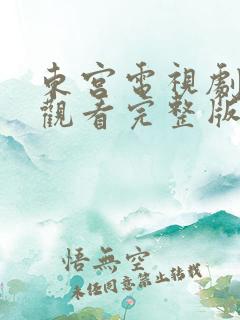 東宮電視劇
觀看完整版
悟無空
未经同意禁止转载